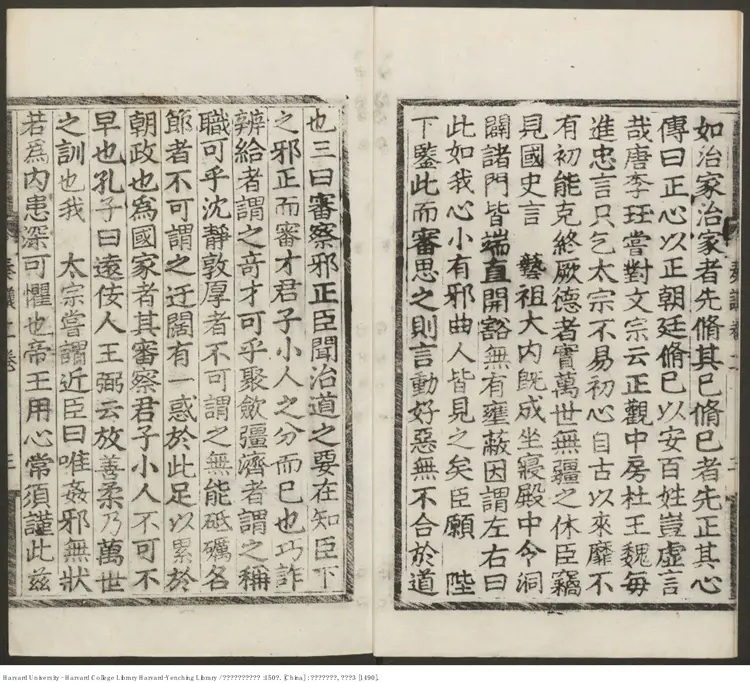 如治家治家者先脩其已脩已者先正其心
傳曰正心以正朝廷脩已以安百姓豈虛言
哉唐李珏嘗對文宗云正觀中房杜王魏每
進忠言只乞太宗不易初心自古以來靡不
有初能克終厥德者實萬世無疆之休臣竊
見國史言 藝祖大内旣成坐寢殿中令洞
闢諸門皆端直開豁無有壅蔽因謂左右曰
此如我心小有邪曲人皆見之矣臣願 陛
下鑒此而審思之則言動好惡無不合於道
也三曰審察邪正臣聞治道之要在知臣下
之邪正而審才君子小人之分而已也巧詐
辨給者謂之奇才可乎聚斂彊濟者謂之稱
職可乎沈靜敦厚者不可謂之無能砥礪名
節者不可謂之迂闊有一惑於此足以累於
朝政也爲國家者其審察君子小人不可不
早也孔子曰遠佞人王弼云放善柔乃萬世
之訓也我 太宗嘗謂近臣曰唯姦邪無狀
若爲内患深可懼也帝王用心常須謹此兹
奏議二卷
三
Harvard University - Harvard College Library Harvard-Yenching Library / ?????????? :150?. [China] : ???????, ???3 [1490].